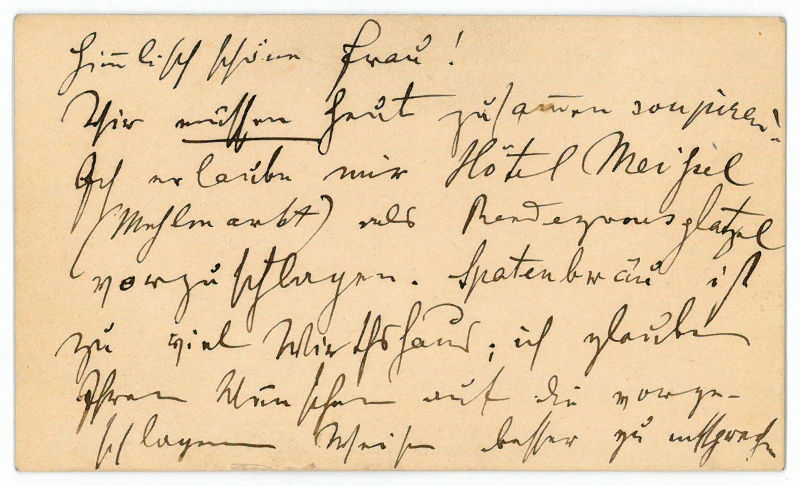 Himmlisch schöne Frau!
Wir müssen heut zusammen soupiren!
Ich erlaube mir Hôtel Meissel
(Mehlmarkt) als Rendezvousplatzel
vorzuschlagen. Spatenbräu ist
zu viel Wirthshaus; ich glaube
Ihren Wünschen auf die vorge-
schlagene Weise besser zu entsprechen